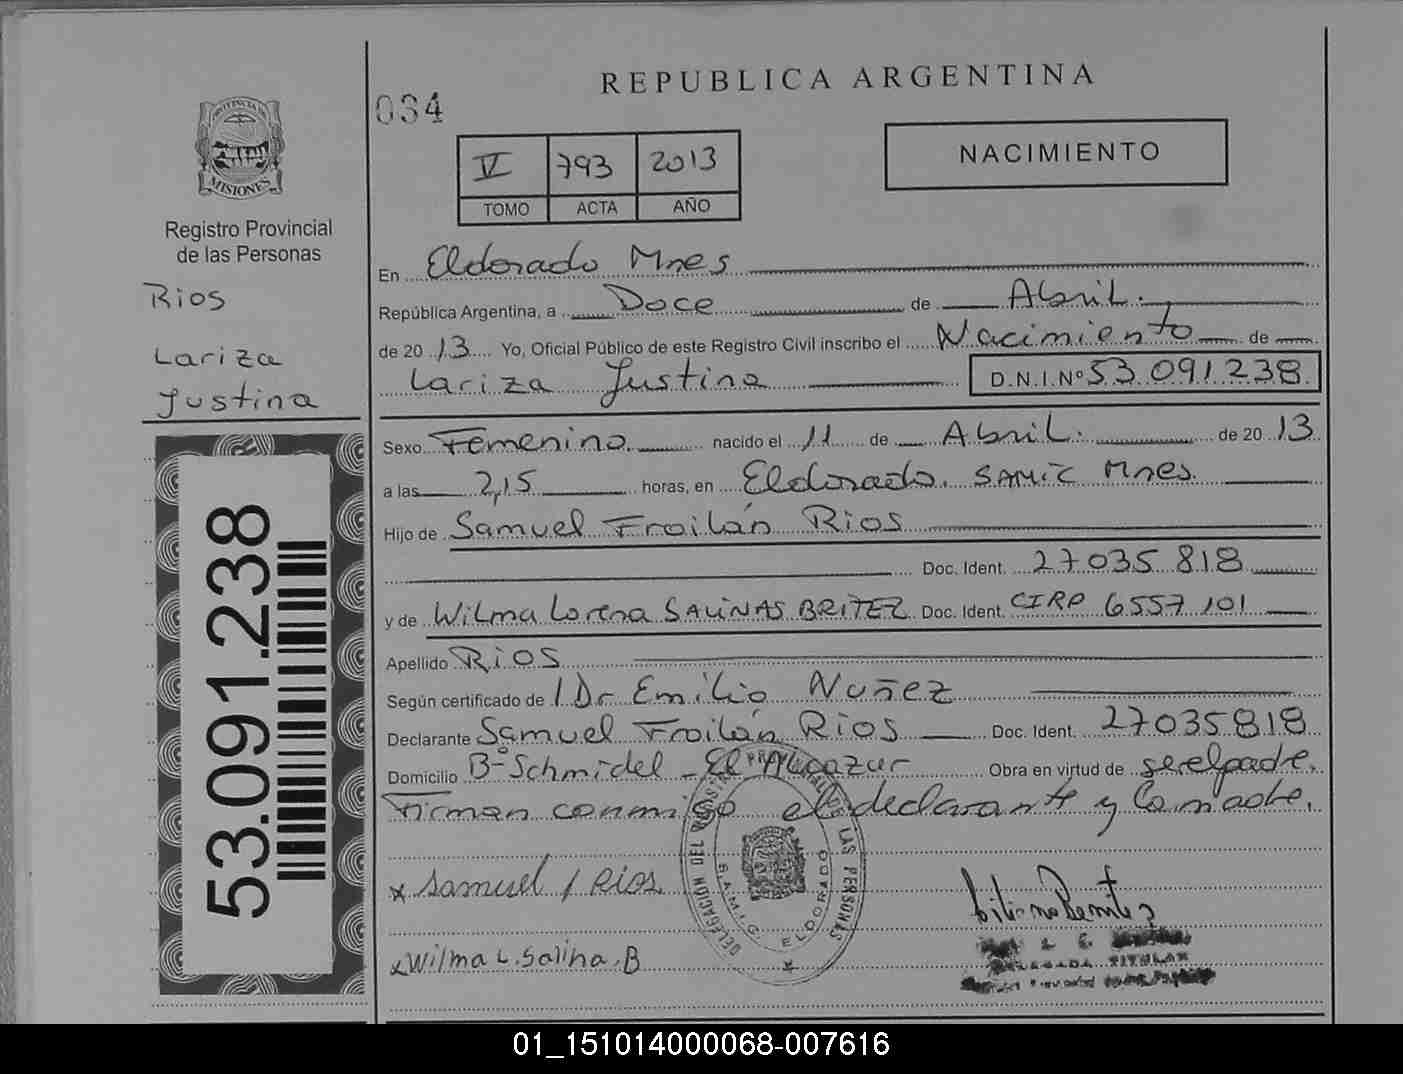 REPUBLICA ARGENTINA
034
V 793 2013
TOMO ACTA AÑO
NACIMIENTO
PROVINCIA DE
MISIONES
Registro Provincial
de las Personas
Rios
Lariza
Justina
53.091.238
En Eldorado Mnes
República Argentina, a Doce de Abril.
de 20 13 Yo, Oficial Público de este Registro Civil inscribo el Nacimiento de
Lariza Justina D.N.I.Nº 53.091.238
Sexo Femenino nacido el 11 de Abril. de 20 13
a las 2,15 horas, en Eldorado. SAMIC Mnes.
Hijo de Samuel Froilán Rios
Doc. Ident. 27035 818
y de Wilma Lorena SALINAS BRITEZ Doc. Ident. CIRP 6557 101
Apellido Rios
Según certificado de Dr Emilio Nuñez
Declarante Samuel Froilán Rios Doc. Ident. 27035818
Domicilio Bº Schmidel - El Alcazar Obra en virtud de ser el padre.
Firman conmigo el declarante y la madre.
DELEGACION DEL REGISTRO PROVINCIAL DE LAS PERSONAS
S.A.M.I.C. ELDORADO
x Samuel / Rios
x Wilma L. Salina. B
DELEGADA TITULAR
01_151014000068-007616